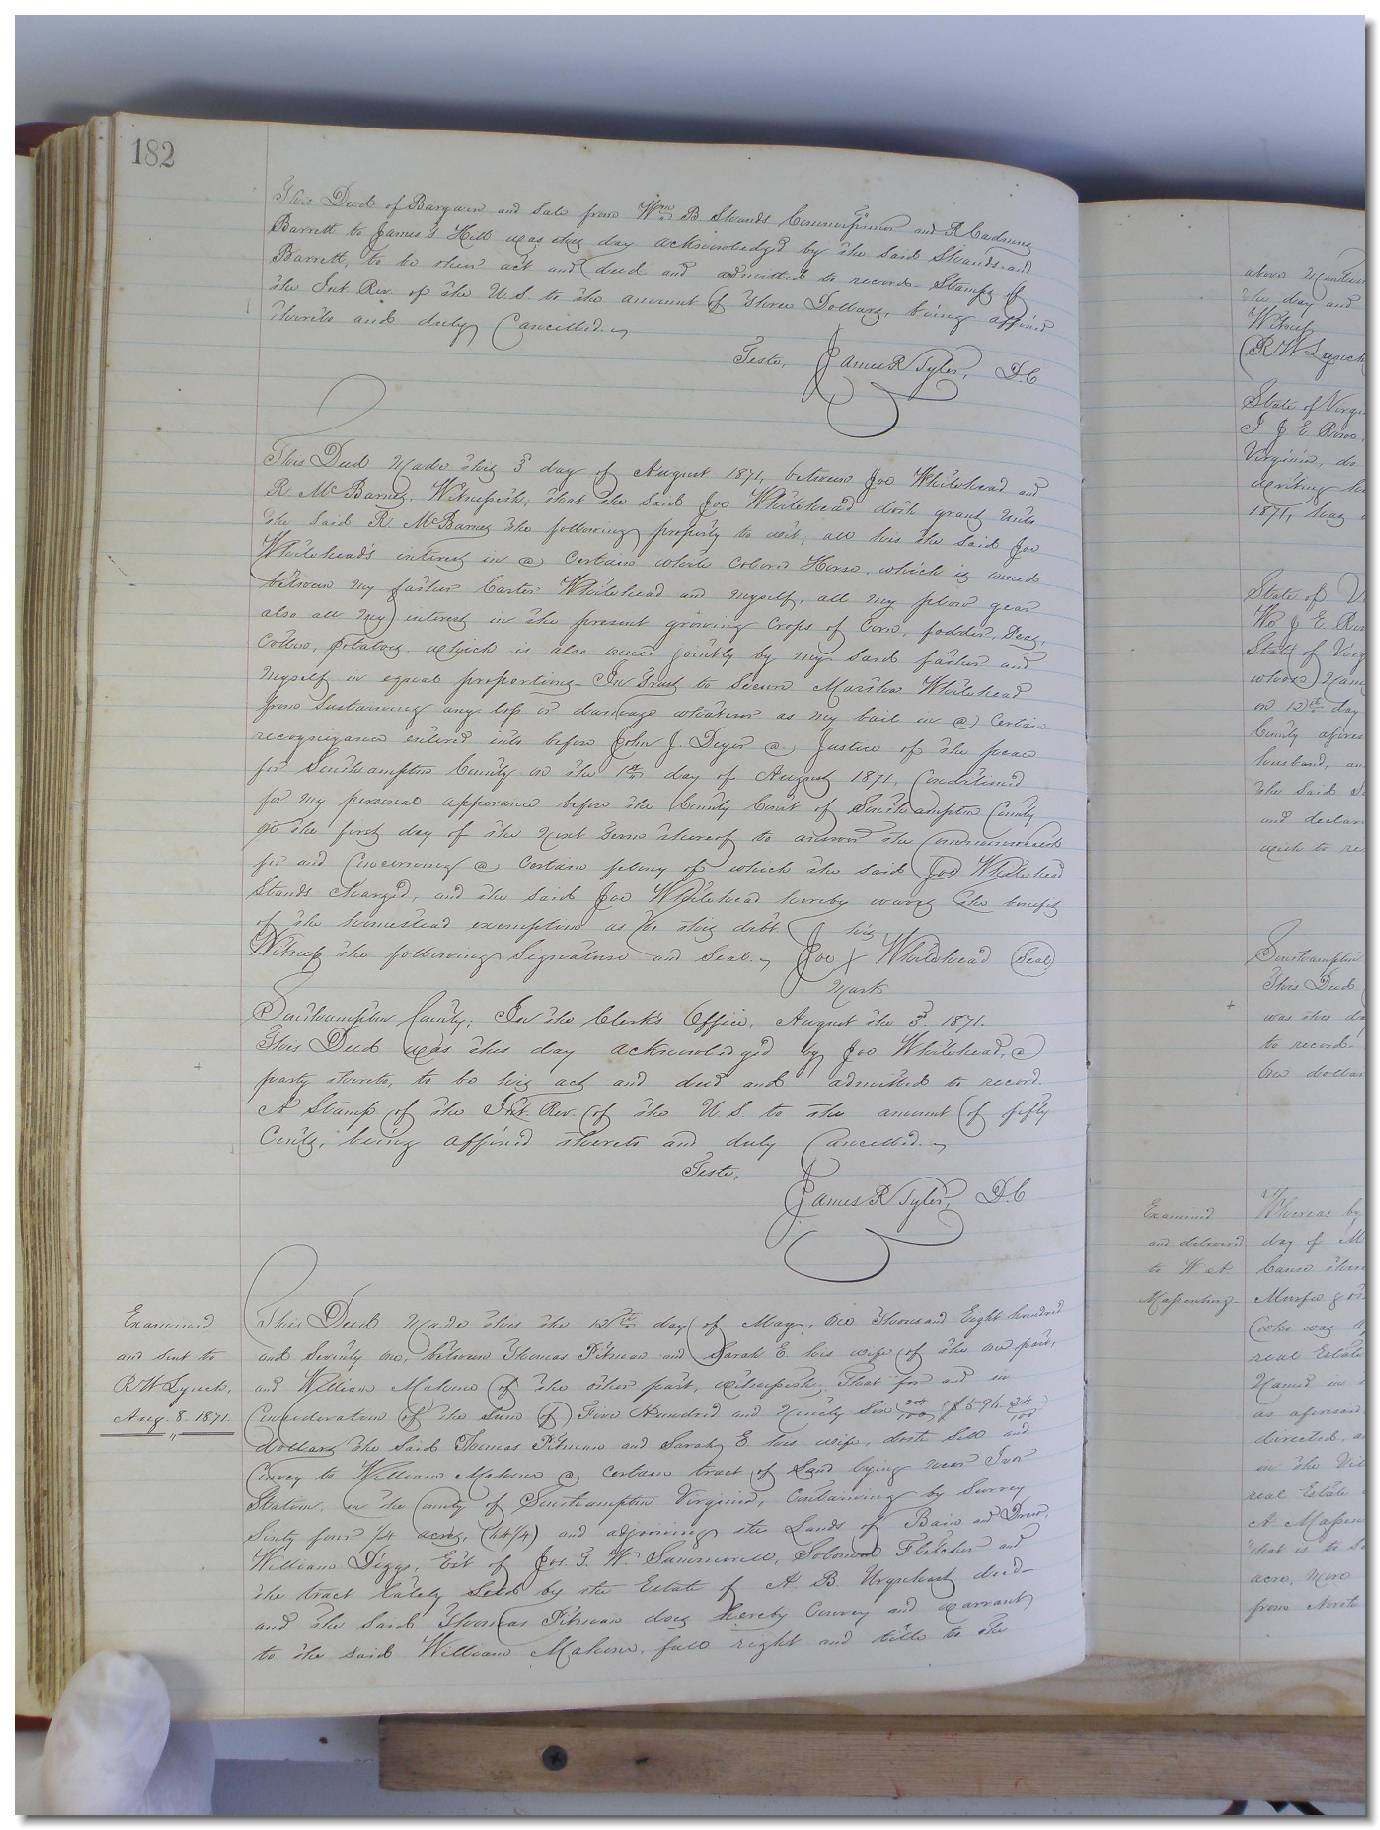 182
This Deed of Bargain and Sale from Wm B Shands Commissioner and R
Barrett to James S Hill was this day acknowledged by the said Shands and
Barrett, to be their act and deed and admitted to record. Stamps of
the Int. Rev. of the U.S. to the amount of Three Dollars, being affixed
thereto and duly Cancelled.
Teste, James R Tyler, D.C
This Deed Made this 3d day of August 1871, between Joe Whitehead and
R. McBarnes. Witnesseth, that the said Joe Whitehead doth grant unto
the said R. McBarnes the following property to wit, all his the said Joe
Whitehead's interest in a certain white colored Horse, which is owned
between my father Carter Whitehead and myself, all my plow gear
also all my interest in the present growing crops of Corn, fodder, Peas,
Cotton, potatoes which is also owned jointly by my said father and
myself in equal proportions. In Trust to Secure Whitehead
from sustaining any loss or damage whatever as my bail in a certain
recognizance entered into before John J. Deyer a Justice of the peace
for Southampton County on the 1st day of August 1871, Conditioned
for my personal appearance before the County Court of Southampton County
on the first day of the next Term thereof to answer the Commonwealth
for and Concerning a certain felony of which the said Joe Whitehead
Stands charged, and the said Joe Whitehead hereby waives the benefit
of the homestead exemption as to this debt.
his
Witness the following Signature and Seal. Joe X Whitehead (Seal)
Mark
Southampton County; In the Clerk's Office, August the 3d. 1871.
This Deed was this day acknowledged by Joe Whitehead, a
party thereto, to be his act and deed and admitted to record.
A Stamp of the Int. Rev. of the U.S. to the amount of fifty
Cents, being affixed thereto and duly Cancelled.
Teste,
James R Tyler, D.C
Examined
and sent to
R W Lynch,
Aug. 8. 1871.
This Deed Made this the 12th day of May, One Thousand Eight hundred
and Seventy one, between Thomas Pitman and Sarah E. his wife of the one part,
and William Malone of the other part, witnesseth; That for and in
Consideration of the Sum of Five Hundred and Ninety Six 24/100 ($596.24/100)
dollars the said Thomas Pitman and Sarah E. his wife, doth sell and
Convey to William Malone a certain tract of Land lying near Ivor
Station, in the County of Southampton Virginia, Containing by Survey
Sixty four 1/4 acres, (64 1/4) and adjoining the Lands of Bain and
William Diggs, Est of Jos. T. W. Summerell, Solomon Fletcher and
the tract lately sold by the Estate of A. B. Urquhart decd
and the said Thomas Pitman does hereby Convey and warrant
to the said William Malone full right and title to the
the day and
Witness
(R W Lynch
State of Virgi
I J E
Virginia, do
1871, has
State of V
State of Virg
on 12th day
County afores
husband, an
the said S
and declar
wish to re
Southampton
This Deed
was this da
to record
Examined
and delivered
to W A.
Whereas by
day of M
real Estate
Named in
as aforesaid
directed, a
in the Vil
real Estate
that is to S
acre, more
from North